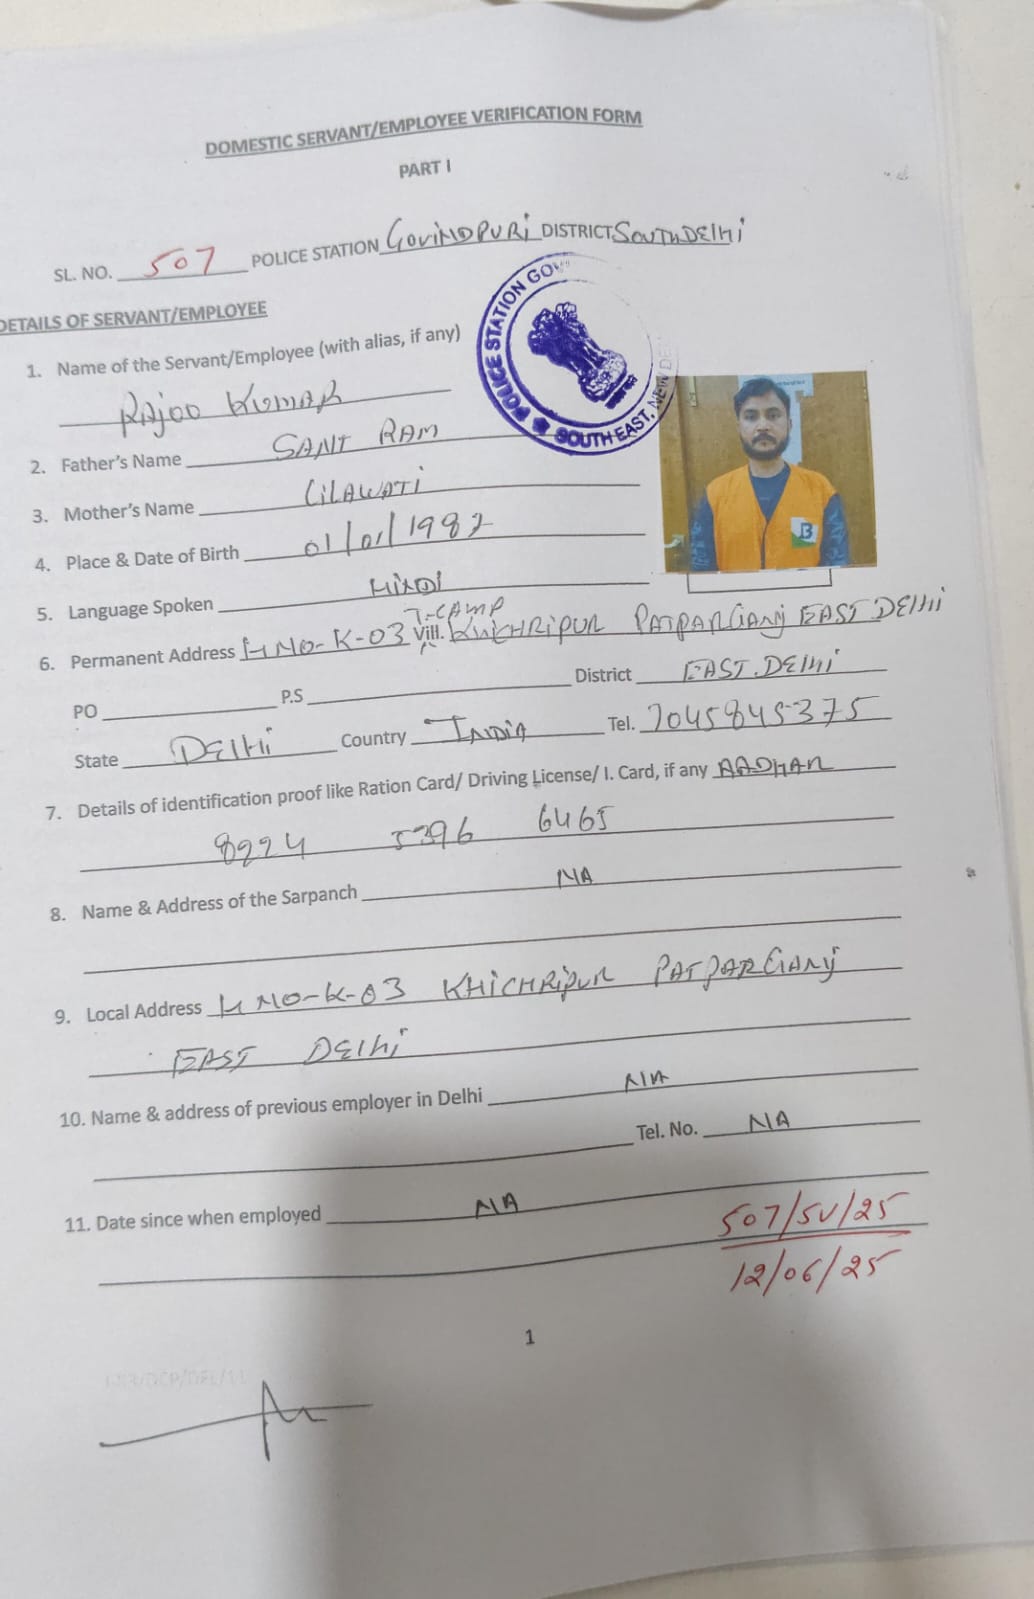 DOMESTIC SERVANT/EMPLOYEE VERIFICATION FORM
PART I
SL. NO. 507 POLICE STATION GOVINDPURI DISTRICT SOUTH DELHI
DETAILS OF SERVANT/EMPLOYEE
1. Name of the Servant/Employee (with alias, if any)
RAJOO KUMAR
POLICE STATION GOV
SOUTH EAST, NEW DE
2. Father's Name SANT RAM
3. Mother's Name LILAWATI
4. Place & Date of Birth 01/01/1982
B
5. Language Spoken HINDI
T-CAMP
6. Permanent Address H NO-K-03 Vill. KHICHRIPUR PATPARGANJ EAST DELHI
PO P.S District EAST.DELHI
State DELHI Country INDIA Tel. 7045845375
7. Details of identification proof like Ration Card/ Driving License/ I. Card, if any AADHAR
8224 5396 6465
8. Name & Address of the Sarpanch NA
9. Local Address H NO-K-03 KHICHRIPUR PATPARGANJ
EAST DELHI
10. Name & address of previous employer in Delhi NA
Tel. No. NA
11. Date since when employed NA
507/SV/25
12/06/25
1